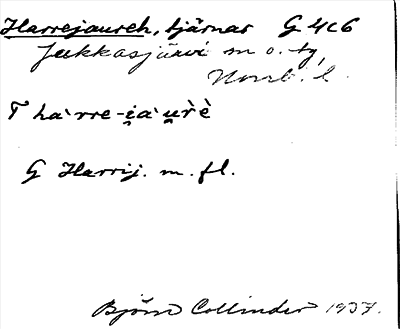 Harrejaureh, tjärnar G 4c6
Jukkasjärvi sn o. tg,
Norrb. l.
T hàrre-i̯àu̯rè
G Harrij. m. fl.
Björn Collinder 1937.